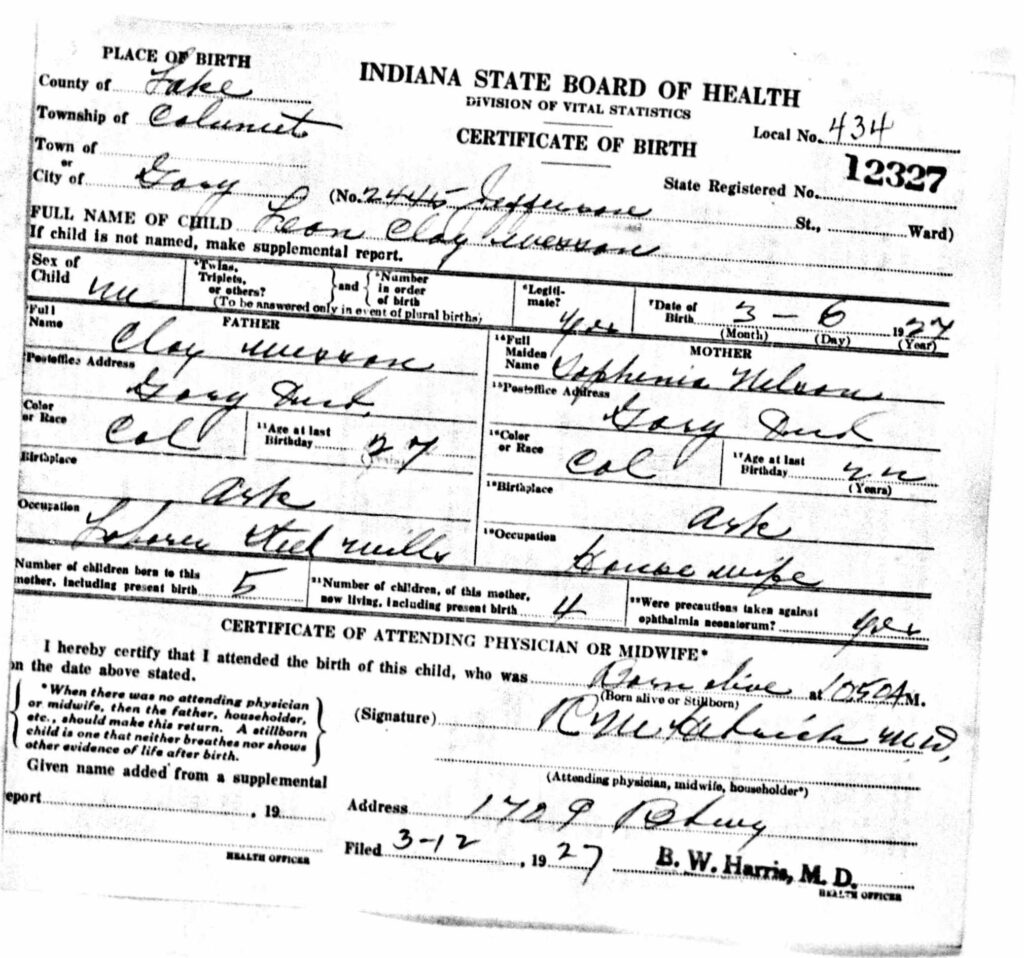 PLACE OF BIRTH
INDIANA STATE BOARD OF HEALTH
County of Lake
DIVISION OF VITAL STATISTICS
Township of Calumet
Local No. 434
CERTIFICATE OF BIRTH
Town of
or
City of Gary (No. 2445 Jefferson St., Ward)
State Registered No. 12327
FULL NAME OF CHILD Leon Clay
If child is not named, make supplemental report.
Sex of Child M
Twins, Triplets, or others? and Number in order of birth
(To be answered only in event of plural births)
Legitimate? yes
7Date of Birth 3 - 6 1927
(Month) (Day) (Year)
FATHER
Full Name Clay
Postoffice Address
Gary Ind.
Color or Race Col
11Age at last Birthday 27
(Years)
Birthplace
Ark
Occupation
Laborer Steel Mills
MOTHER
14Full Maiden Name Sophenia Nelson
15Postoffice Address
Gary Ind
16Color or Race Col
17Age at last Birthday 22
(Years)
18Birthplace
Ark
19Occupation
House wife
Number of children born to this mother, including present birth 5
21Number of children, of this mother, now living, including present birth 4
22Were precautions taken against ophthalmia neonatorum? yes
CERTIFICATE OF ATTENDING PHYSICIAN OR MIDWIFE*
I hereby certify that I attended the birth of this child, who was Born alive at 1050 A M.
on the date above stated.
(Born alive or Stillborn)
*When there was no attending physician
or midwife, then the father, householder,
etc., should make this return. A stillborn
child is one that neither breathes nor shows
other evidence of life after birth.
(Signature) M.D.
(Attending physician, midwife, householder*)
Given name added from a supplemental
report , 19
HEALTH OFFICER
Address 1709 Bdwy
Filed 3-12, 1927
B. W. Harris, M. D.
HEALTH OFFICER